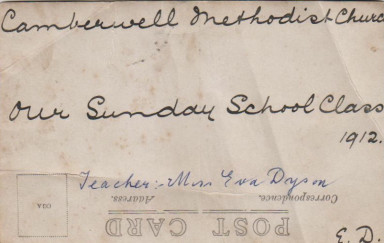 Camberwell Methodist Churc
Our Sunday School Class
1912.
Teacher:- Miss Eva Dyson
Correspondence.
Address.
POST CARD
E. D.